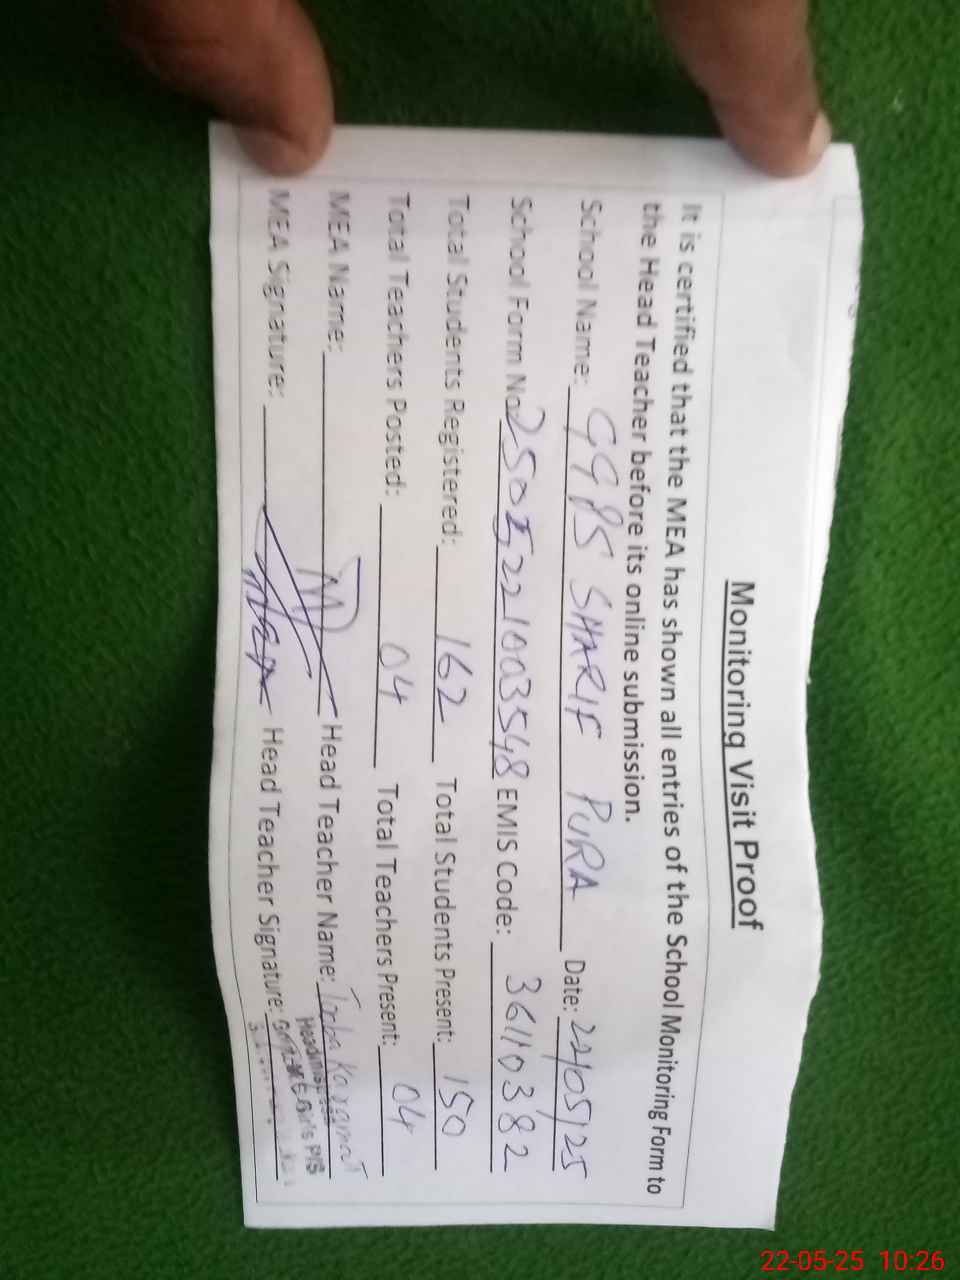 Monitoring Visit Proof
It is certified that the MEA has shown all entries of the School Monitoring Form to
the Head Teacher before its online submission.
School Name: GGPS SHARIF PURA Date: 22/05/25
School Form No. 2505221003548 EMIS Code: 36110382
Total Students Registered: 162 Total Students Present: 150
Total Teachers Posted: 04 Total Teachers Present: 04
MEA Name: Head Teacher Name:
Headmistress
MEA Signature: Head Teacher Signature:
22-05-25 10:26